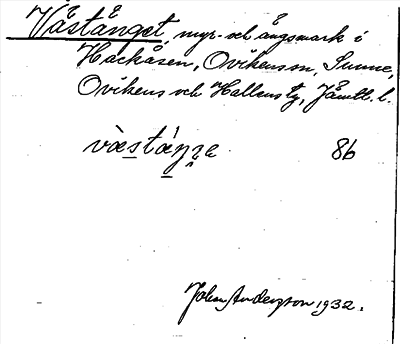 Västänget, myr- och ängsmark i
Hackåsen, Ovikens sn, Sunne,
Ovikens och Hallens tg, Jämtl. l.
væstæŋ̣e 86
John Anderzon 1932.